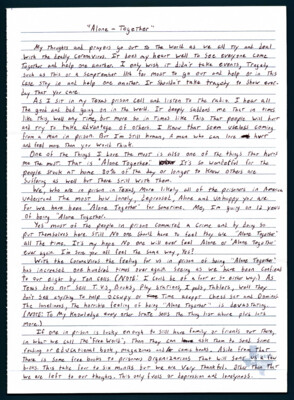 "Alone - Together"
My thoughts and prayers go out to the World as we all try and deal
with the deadly Coronavirus. It does my heart well to see everyone come
Together and help one another. I only wish it didn't take events, Tragedy
such as this or a September 11th for most to go out and help or in this
case stay in and help one another. It shouldn't take tragedy to show every-
day that you care.
As I sit in my Texas prison cell and listen to the radio, I hear all
the good and bad going on in the world. It deeply saddens me that in time
like this, well any time, but more so in times like this That people will hurt
and try to take advantage of others. I know that seem useless coming
from a man in prison. But I'm still human, a man who can love hurt
and feel more than you would think.
One of the Things I love the most is also one of the things that hurts
me the most. That is "Alone Together". It's so wonderful for the
people stuck at home 80% of the day or longer to know others are
suffering as well but there still with them.
We, who are in prison in Texas, more likely all of the prisoners in America
understand the most how lonely, depressed, Alone and unhappy you are.
for we have been "Alone Together" for sometime. Me, I'm going on 12 years
of being "Alone Together".
Yes most of the people in prison commited a crime and by doing so
put themselves here. Still No one should have to feel they are "Alone Together"
all the time. It's my hope No one will ever feel Alone or "Alone Together"
ever again. I'm sure you all feel the same way No?
With the Coronavirus the feeling for us in prison of being "Alone Together"
has increased one hundred times over again seeing as we have been confined
to our eight by ten cells (NOTE: I could be off a foot or so either way). As
Texas does not have T.V.s, Drinks, Play Stations, I pods, Tablets, well They
don't have anything to help occupy or time except chess set and Dominos
The loneliness, the horrible feeling of being "Alone Together" is devastating.
(NOTE: To My Knowledge every other state has the things list above plus lots
more.)
If one in prison is lucky enough to still have family or friends out there,
in what we call the "Free World". Then they can tell them to send some
reading or educational books, magazines and or comic books. Aside from that
there is some free books to prisoners organizations that will send us a few
books. This take four to six months but we are very thankful. Other than that
we are left to our thoughts. This only feeds our depression and loneliness.